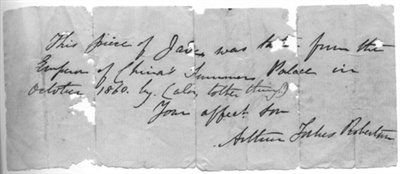 This piece of Jade was taken from the
Emperor of China's Summer Palace in
October 1860. by (alex tother things)
Your affect son
Arthur Forbes Robertson